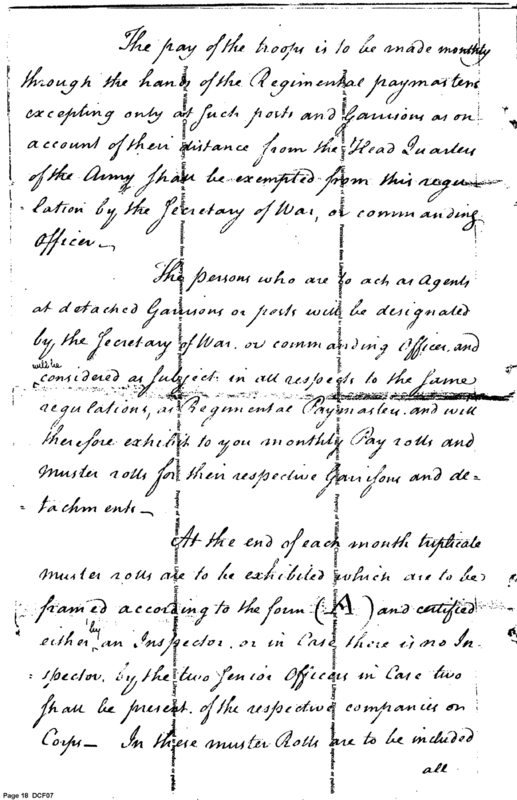 The pay of the troops is to be made monthly
through the hands of the Regimental paymasters
excepting only at such posts and Garrisons as on
account of their distance from the Head Quarters
of the Army shall be exempted from this regu-
-lation by the Secretary of War, or commanding
Officer_
The persons who are to act as Agents
at detached Garrisons or posts will be designated
by the Secretary of War. or commanding Officer, and
will be
considered as subject in all respects to the same
regulations, as Regimental Paymasters. and will
therefore exhibit to you monthly Pay rolls and
muster rolls for their respective Garrisons and de=
=tachments_
At the end of each month triplicate
muster rolls are to be exhibited which are to be
framed according to the form (A) and certified
either by an Inspector. or in Case there is no In-
=spector. by the two Senior Officers in Case two
shall be present. of the respective companies or
Corps_ In these muster Rolls are to be included
all
Page 18 DCF07